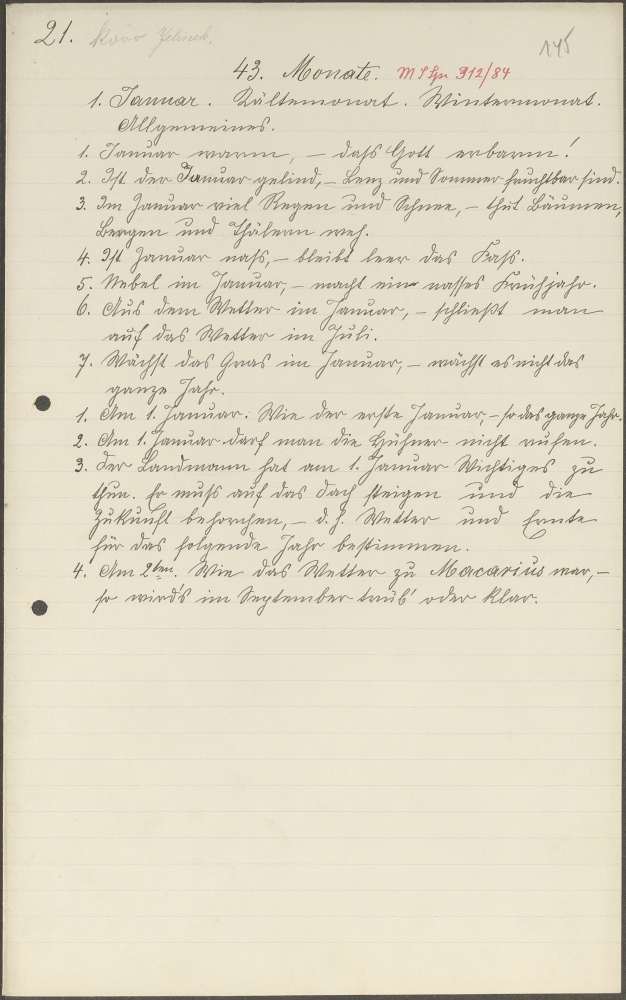 21.
145
43. Monate. M S Gr 312/84
1. Januar. Kältemonat. Wintermonat.
Allgemeines.
1. Januar warm, – dass Gott erbarm!
2. Ist der Januar gelind, – Lenz und Sommer fruchtbar sind.
3. Im Januar viel Regen und Schnee, – thut Bäumen,
Bergen und Thälern weh.
4. Ist Januar nass, – bleibt leer das Fass.
5. Nebel im Januar, – macht ein nasses Frühjahr.
6. Aus dem Wetter im Januar, – schließt man
auf das Wetter im Juli.
7. Wächst das Gras im Januar, – wächst es nicht das
ganze Jahr.
1. Am 1. Januar. Wie der erste Januar, – so das ganze Jahr.
2. Am 1. Januar darf man die Hühner nicht rufen.
3. Der Landmann hat am 1. Januar Wichtiges zu
thun. Er muss auf das Dach steigen und die
Zukunft behorchen, – d. h. Wetter und Ernte
für das folgende Jahr bestimmen.
4. Am 2ten. Wie das Wetter zu Macarius war, –
so wird's im September trüb' oder klar.